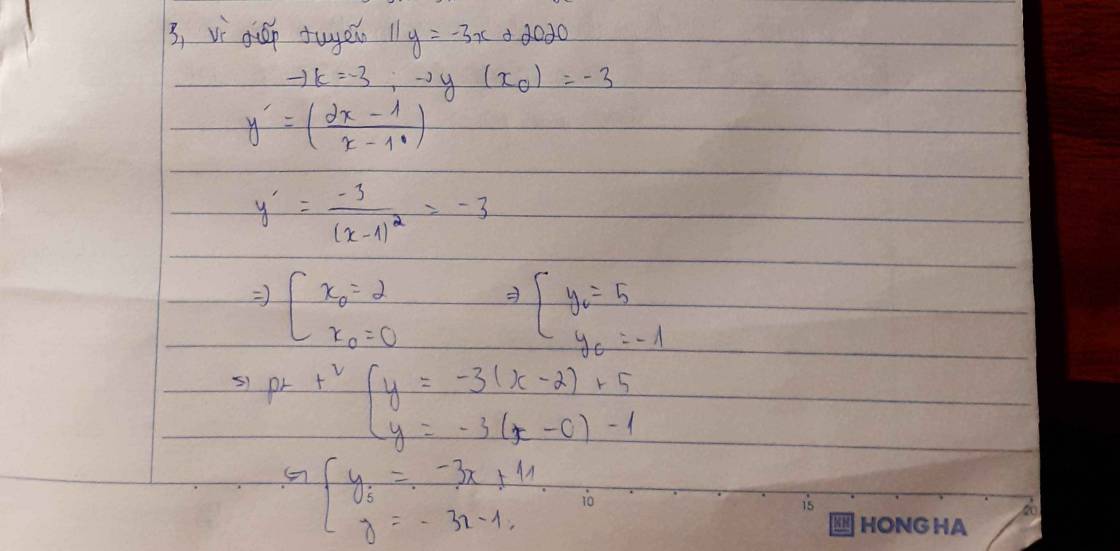 3, Vì tiếp tuyến // y = -3x + 2020
→ k = -3 ; → y (x₀) = -3
y' = (2x - 1 / x - 1)
y' = -3 / (x-1)² = -3
=> [ x₀ = 2 => [ y₀ = 5
x₀ = 0 y₀ = -1
=> pt t² [ y = -3(x-2) + 5
y = -3(x-0) - 1
<=> [ y = -3x + 11
y = -3x-1.
5 10 15 20
HH HONG HA